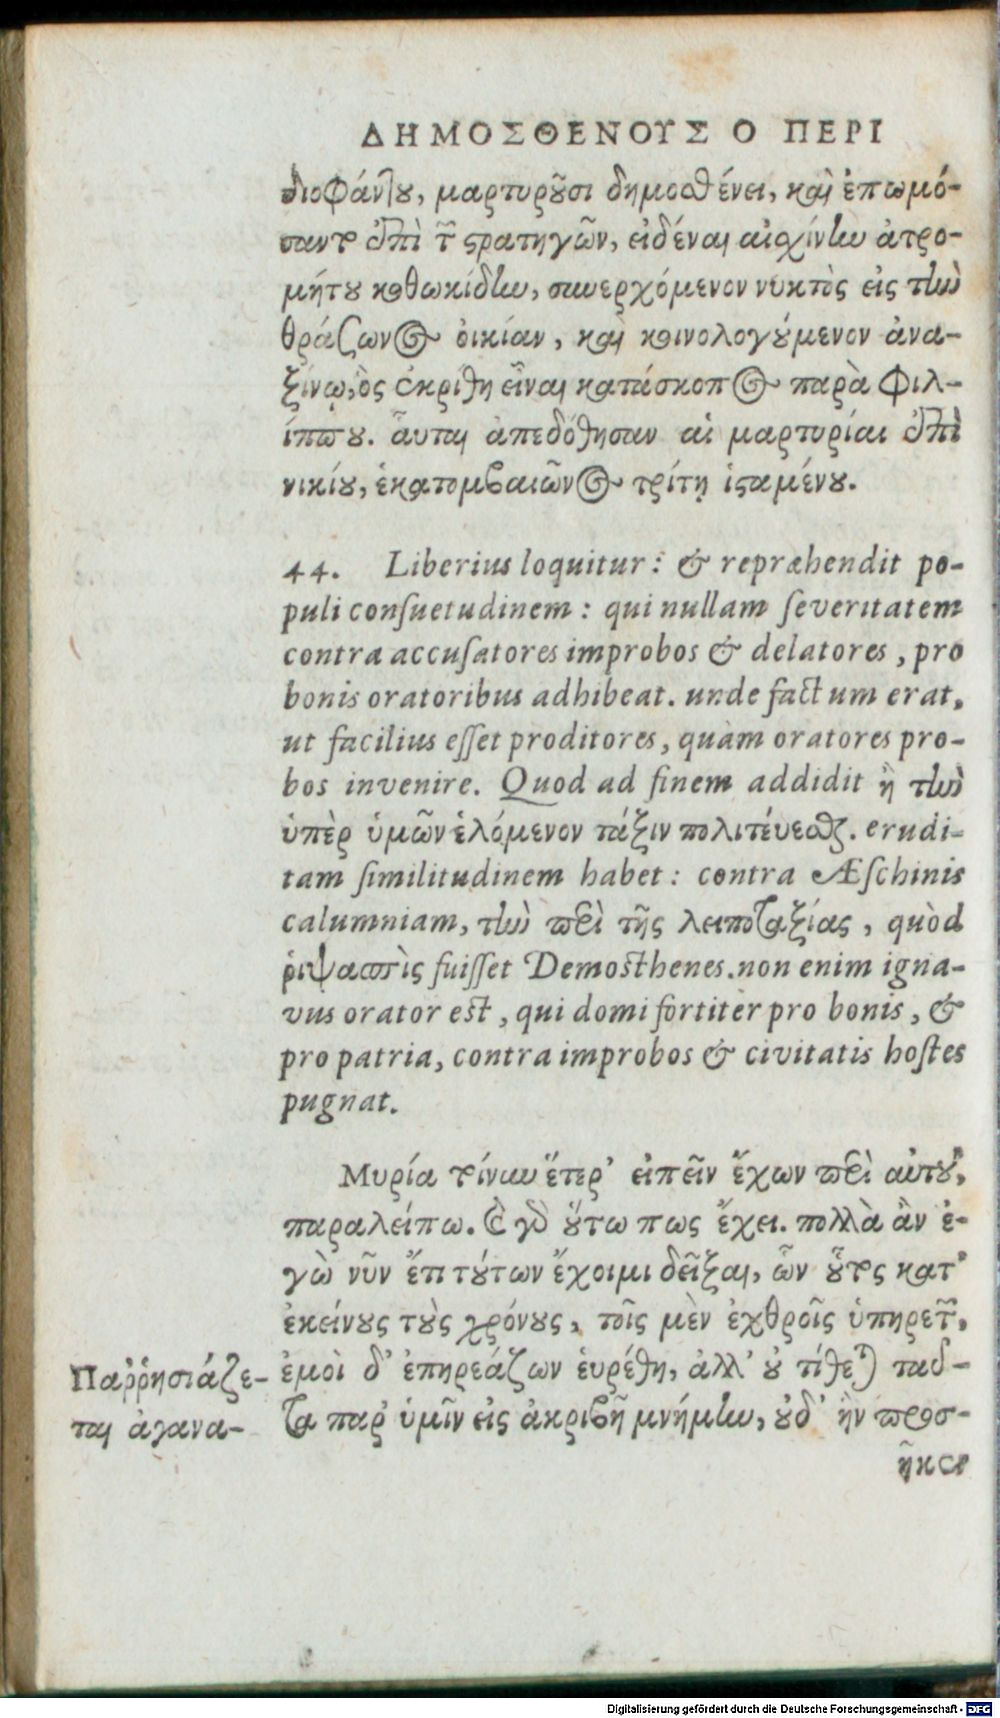 ΔΗΜΟΣΘΕΝΟΥΣ Ο ΠΕΡΙ
διοφάντου, μαρτυροῦσι δημοσθένει, καὶ ἐπωμό-
σαντο ἐπὶ τῶν στρατηγῶν, εἰδέναι αἰσχίνην ἀτρο-
μήτου κοθωκίδην, συνερχόμενον νυκτὸς εἰς τὴν
θράσωνος οἰκίαν, καὶ κοινολογούμενον ἀνα-
ξίνῳ, ὃς ἐκρίθη εἶναι κατάσκοπος παρὰ φιλ-
ίππου. αὗται ἀπεδόθησαν αἱ μαρτυρίαι ἐπὶ
νικίου, ἑκατομβαιῶνος τρίτῃ ἱσταμένου.
44. Liberius loquitur: & repræhendit po-
puli conſuetudinem: qui nullam ſeveritatem
contra accuſatores improbos & delatores, pro
bonis oratoribus adhibeat. unde factum erat,
ut facilius eſſet proditores, quàm oratores pro-
bos invenire. Quod ad finem addidit ἢ τὴν
ὑπὲρ ὑμῶν ἑλόμενον τάξιν πολιτεύεσθαι. erudi-
tam ſimilitudinem habet: contra Æſchinis
calumniam, τὴν περὶ τῆς λειποταξίας, quòd
ῥιψασπὶς fuiſſet Demoſthenes. non enim igna-
vus orator eſt, qui domi fortiter pro bonis, &
pro patria, contra improbos & civitatis hoſtes
pugnat.
Μυρία τοίνυν ἕτερ' εἰπεῖν ἔχων περὶ αὐτοῦ,
παραλείπω. καὶ γὰρ οὕτω πως ἔχει. πολλὰ ἂν ἐ-
γὼ νῦν ἔτι τούτων ἔχοιμι δεῖξαι, ὧν οὗτος κατ'
ἐκείνους τοὺς χρόνους, τοῖς μὲν ἐχθροῖς ὑπηρετῶν,
ἐμοὶ δ' ἐπηρεάζων εὑρέθη, ἀλλ' οὐ τίθεται ταῦ-
τα παρ' ὑμῖν εἰς ἀκριβῆ μνήμην, οὐδ' ἣν προσ-
ῆκεν
Παῤῥησιάζε-
ται ἀγανα-
Digitalisierung gefördert durch die Deutsche Forschungsgemeinschaft - DFG